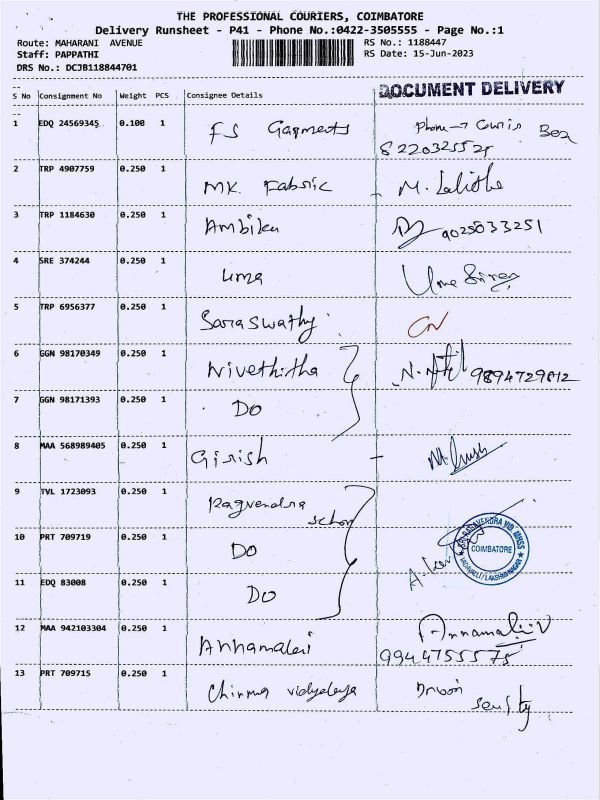 THE PROFESSIONAL COURIERS, COIMBATORE
Delivery Runsheet - P41 - Phone No.:0422-3505555 - Page No.:1
Route: MAHARANI AVENUE RS No.: 1188447
Staff: PAPPATHI RS Date: 15-Jun-2023
DRS No.: DCJB118844701
DOCUMENT DELIVERY
S No Consignment No Weight PCS Consignee Details
1 EDQ 24569345 0.100 1 FS Garments Phone → 
8220325525
2 TRP 4907759 0.250 1 MK. Fabric - M. Lalitha
3 TRP 1184630 0.250 1 Ambika 9025033251
4 SRE 374244 0.250 1 Uma
5 TRP 6956377 0.250 1 Saraswathy CN
6 GGN 98170349 0.250 1 Nivethitha 9894729812
7 GGN 98171393 0.250 1 DO
8 MAA 568989405 0.250 1 Girish -
9 TVL 1723093 0.250 1 Ragvendra
10 PRT 709719 0.250 1 DO
COIMBATORE
11 EDQ 83008 0.250 1 DO
12 MAA 942103304 0.250 1 Annamalai Annamalai.V
9944755575
13 PRT 709715 0.250 1 Chinma vidyalaya